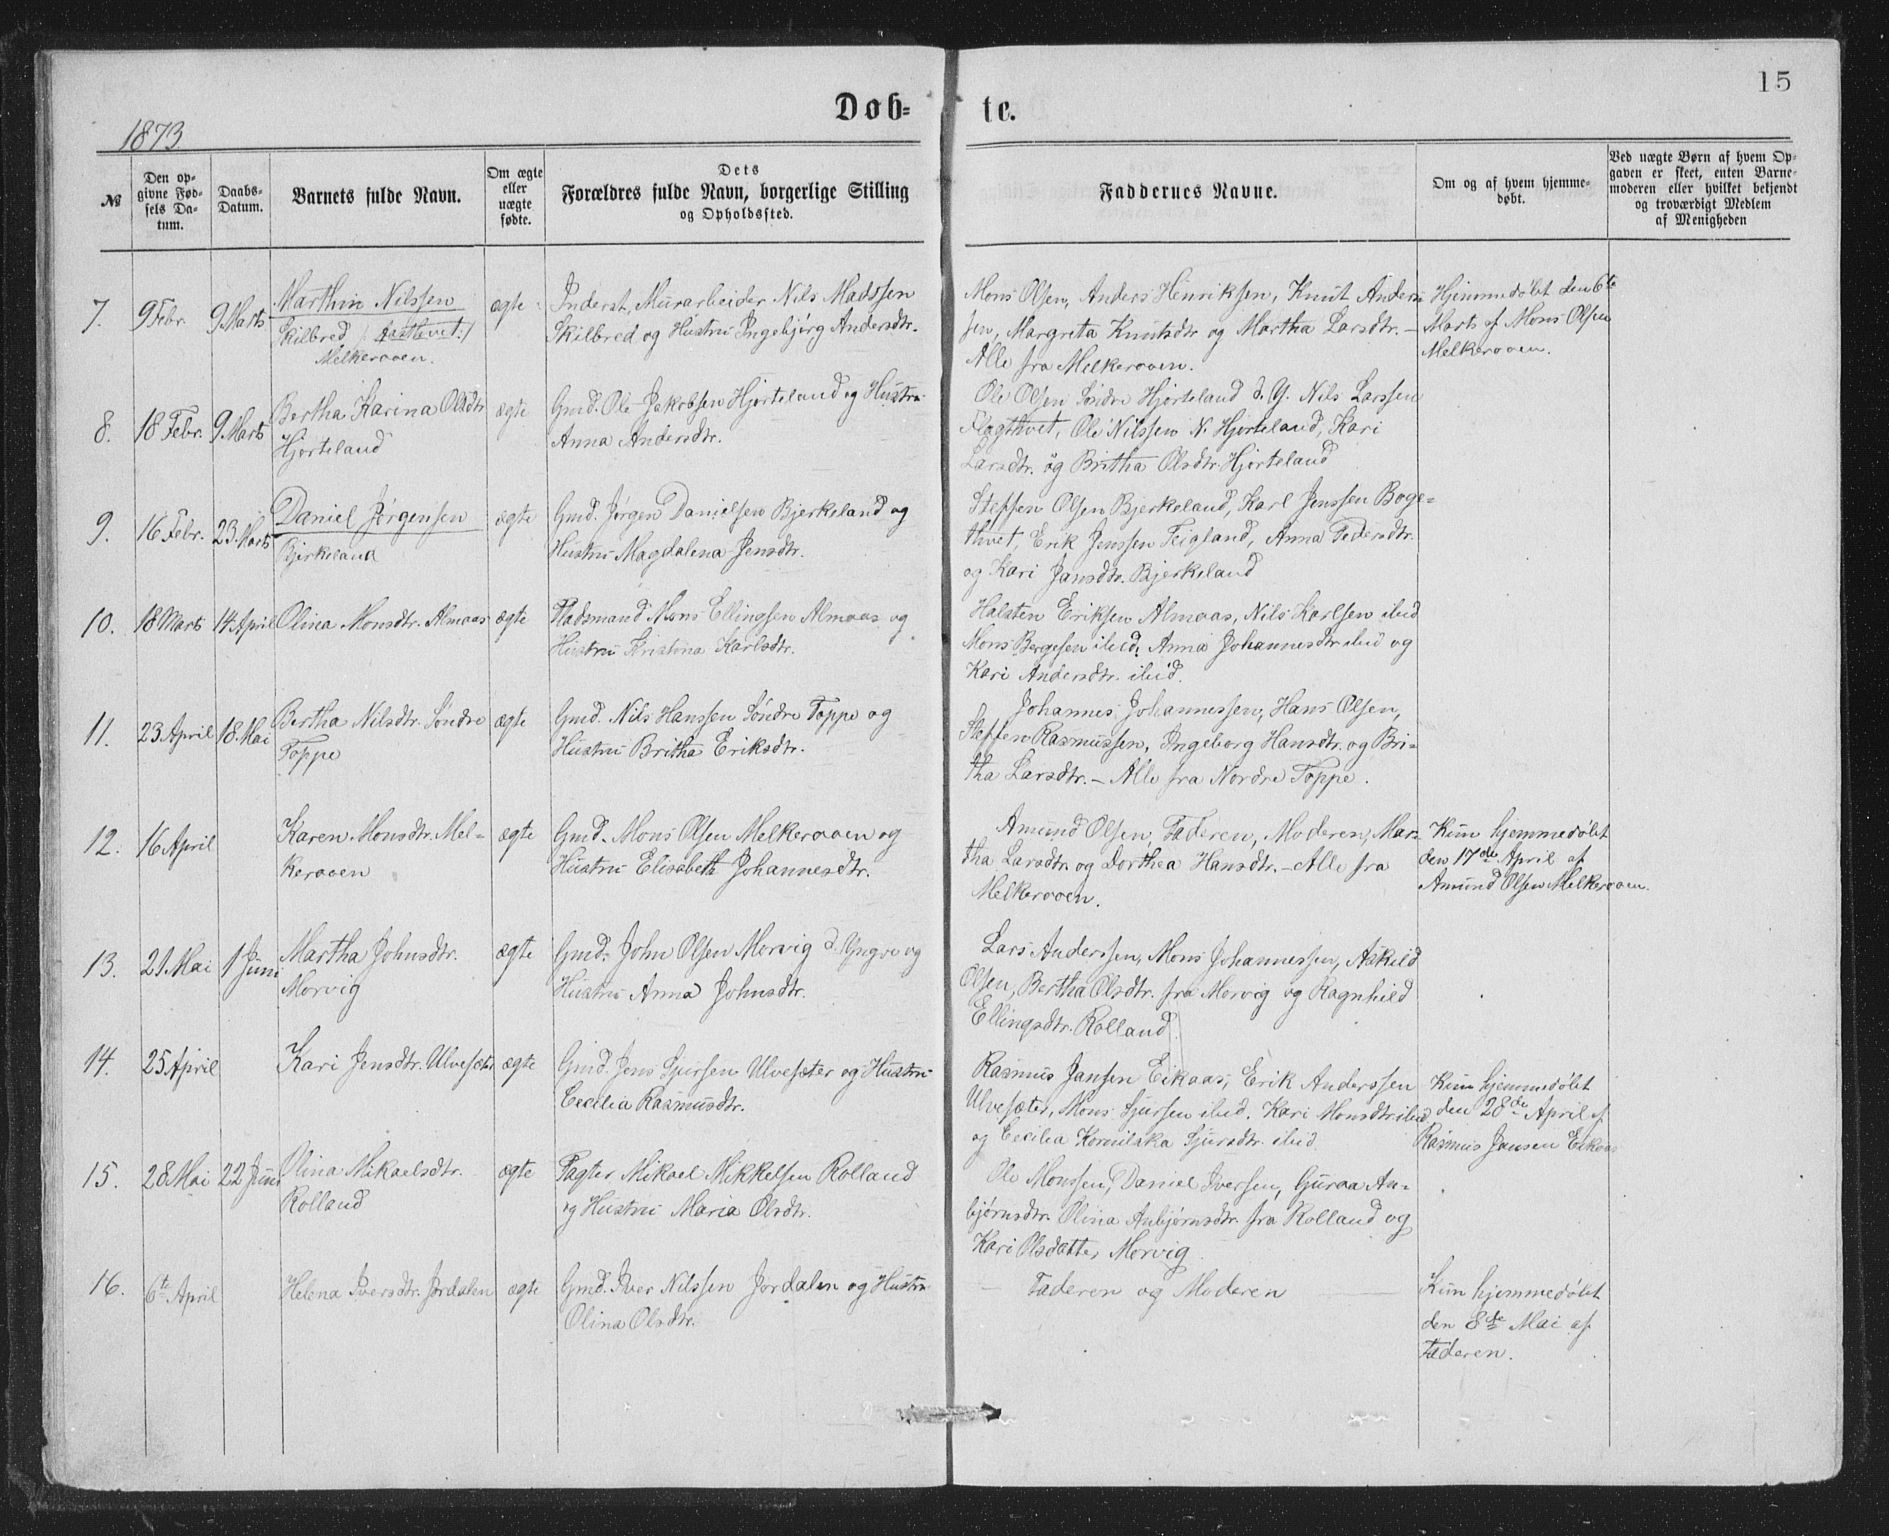 15
Døb- te.
1873
№
Den op-
givne Fød-
sels Da-
tum.
Daabs-
Datum.
Barnets fulde Navn.
Om ægte
eller
uægte
fødte.
Dets
Forældres fulde Navn, borgerlige Stilling
og Opholdssted.
Faddernes Navne.
Om og af hvem hjemme-
døbt.
Ved uægte Børn af hvem Op-
gaven er skeet, enten Barne-
moderen eller hvilket bekjendt
og troværdigt Medlem
af Menigheden
7. 9 Febr. 9 Marts
Marthin Nilssen
Skilbred
Melkeraaen.
ægte
Inderst, Murarbeider Nils Madssen
Skilbred og Hustru Ingebjørg Andersdtr.
Mons Olsen, Anders Henriksen, Knut Anders-
sen, Margreta Knutsdtr og Martha Larsdtr. –
Alle fra Melkeraaen.
Hjemmedøbt den 6te
Marts af Mons Olsen
Melkeraaen.
8. 18 Febr. 9 Marts
Bertha Karina Olsdtr
Hjorteland
ægte
Gmd. Ole Jakobsen Hjorteland og Hustru
Anna Andersdtr.
Ole Olsen Søndre Hjorteland d. Y. Nils Larssen
Flagthvet, Ole Nilssen N. Hjorteland, Kari
Larsdtr. og Britha Olsdtr. Hjorteland
9. 16 Febr. 23 Marts
Daniel Jørgensen
Bjerkeland
ægte
Gmd. Jørgen Danielsen Bjerkeland og
Hustru Magdalena Jensdtr.
Steffen Olsen Bjerkeland, Karl Jenssen Boge-
thvet, Erik Jenssen Feigland, Anna Pedersdtr.
og Kari Jansdtr. Bjerkeland
10. 18 Marts 14 April
Olina Monsdtr. Almaas
ægte
Pladsmand Mons Ellingsen Almaas og
Hustru Kristina Karlsdtr.
Halsten Eriksen Almaas, Nils Karlsen ibid
Mons Bergesen ibid, Anna Johannesdtr ibid og
Kari Andersdtr. ibid.
11. 23 April 18. Mai
Bertha Nilsdtr. Søndre
Toppe
ægte
Gmd. Nils Hanssen Søndre Toppe og
Hustru Britha Eriksdtr.
Johannes Johannessen, Hans Olsen,
Steffen Rasmussen, Ingeborg Hansdtr. og Bri-
tha Larsdtr. – Alle fra Nordre Toppe.
12. 16 April
Karen Monsdtr. Mel-
keraaen
ægte
Gmd. Mons Olsen Melkeraaen og
Hustru Elisabeth Johannesdtr.
Amund Olsen, Faderen, Moderen, Mar-
tha Larsdtr. og Dorthea Hansdtr. – Alle fra
Melkeraaen.
Kun hjemmedøbt
den 17de April af
Amund Olsen Melkeraaen.
13. 21 Mai 1 Juni
Martha Johnsdtr.
Morvig
ægte
Gmd. John Olsen Morvig d. Yngre og
Hustru Anna Johnsdtr.
Lars Anderssen, Mons Johannessen, Askild
Olsen, Bertha Olsdtr. fra Morvig og Ragnhild
Ellingsdtr. Rolland.
14. 25 April
Kari Jensdtr. Ulvesæter
ægte
Gmd. Jens Sjursen Ulvesæter og Hustru
Cecilia Rasmusdtr.
Rasmus Jansen Eikaas, Erik Anderssen
Ulvesæter, Mons Sjursen ibid. Kari Monsdtr ibid
og Cecilia Sjursdtr. ibid
Kun hjemmedøbt
den 28de April af
Rasmus Jansen Eikaas
15. 28 Mai 22 Juni
Olina Mikaelsdtr.
Rolland
ægte
Fogter Mikael Mikkelsen Rolland
og Hustru Maria Olsdtr.
Ole Monssen, Daniel Iversen, Guroa An-
bjørnsdtr. Olina Anbjørnsdtr. fra Rolland og
Kari Olsdatter Morvig.
16. 6te April
Helena Iversdtr. Jordalen
ægte
Gmd. Iver Nilssen Jordalen og Hustru
Olina Olsdtr.
– Faderen og Moderen –
Kun hjemmedøbt
den 8de Mai af
Faderen.